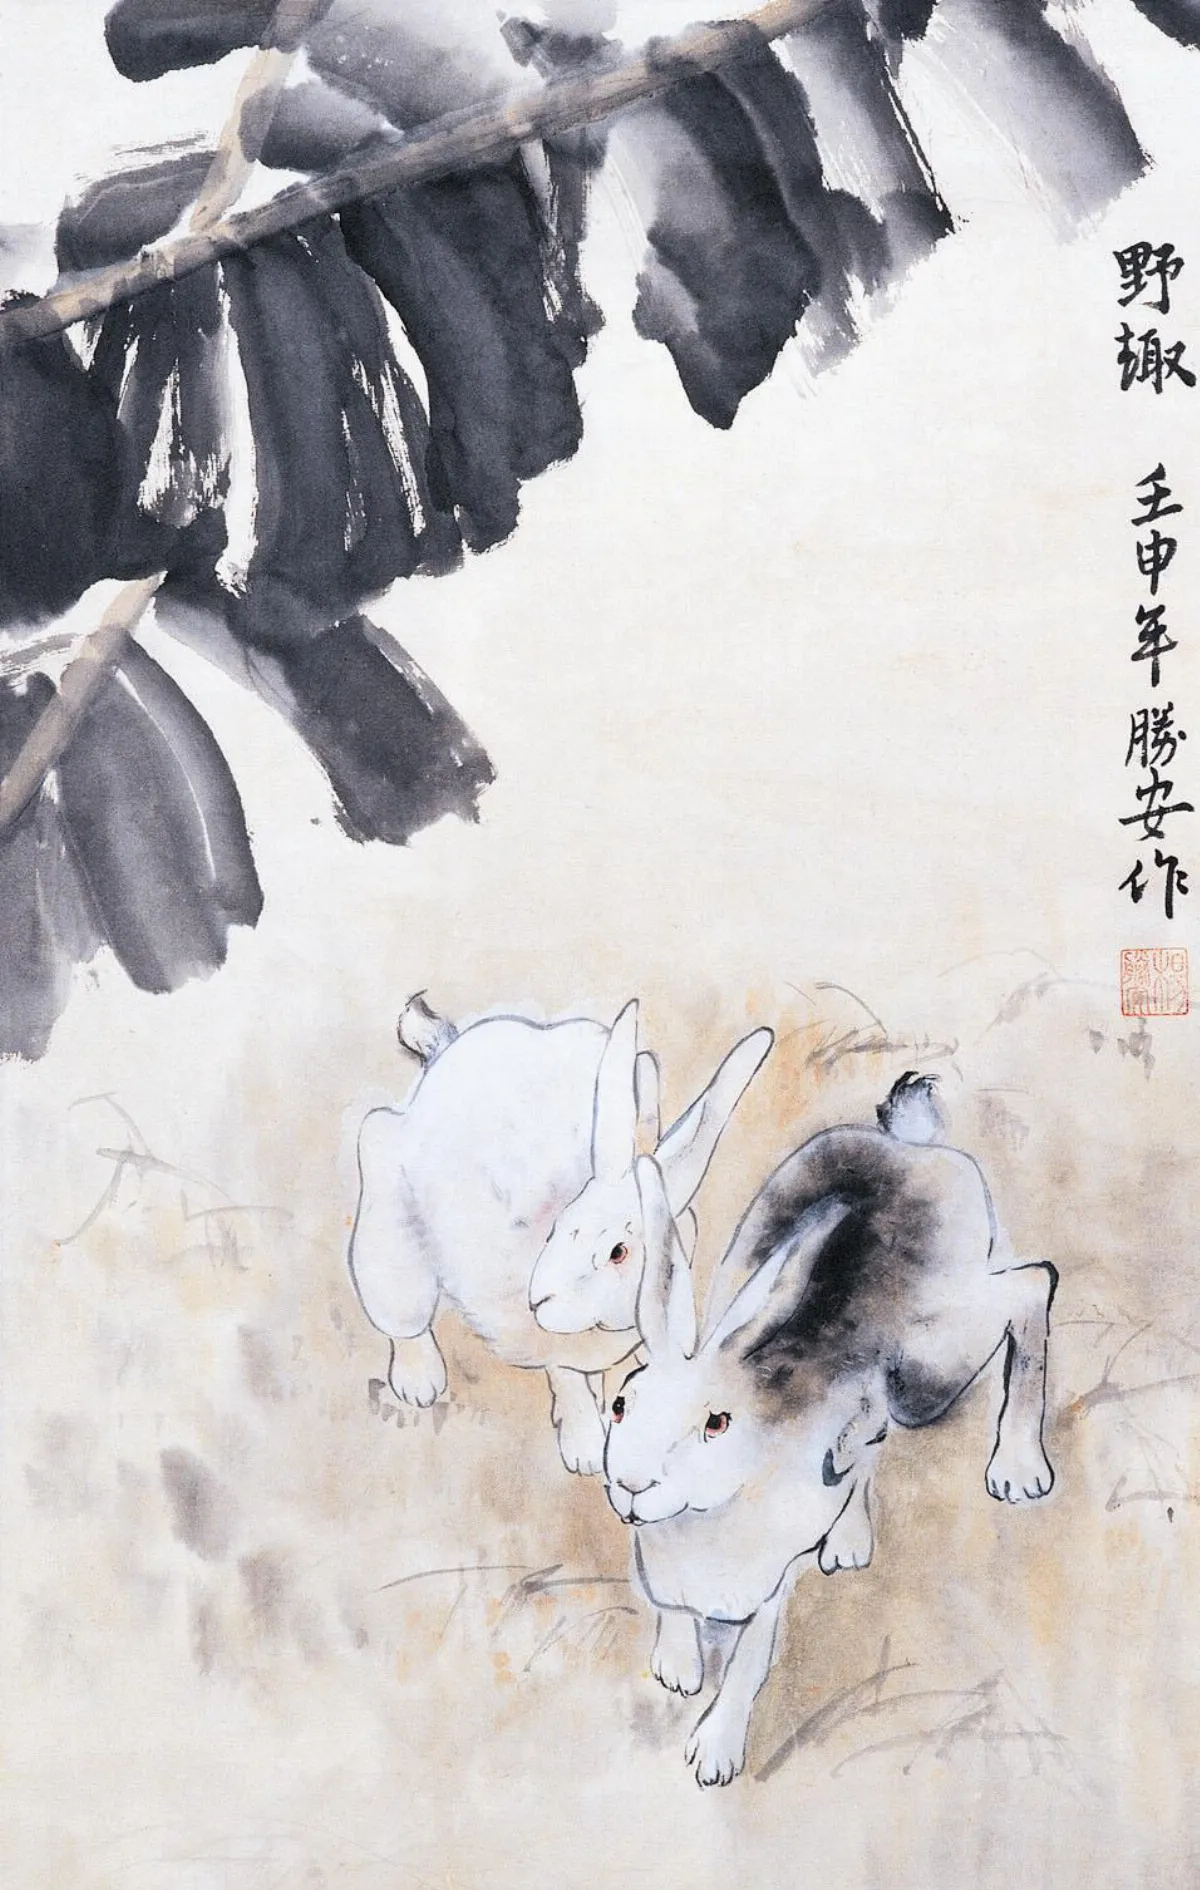 野趣 壬申年 勝安作